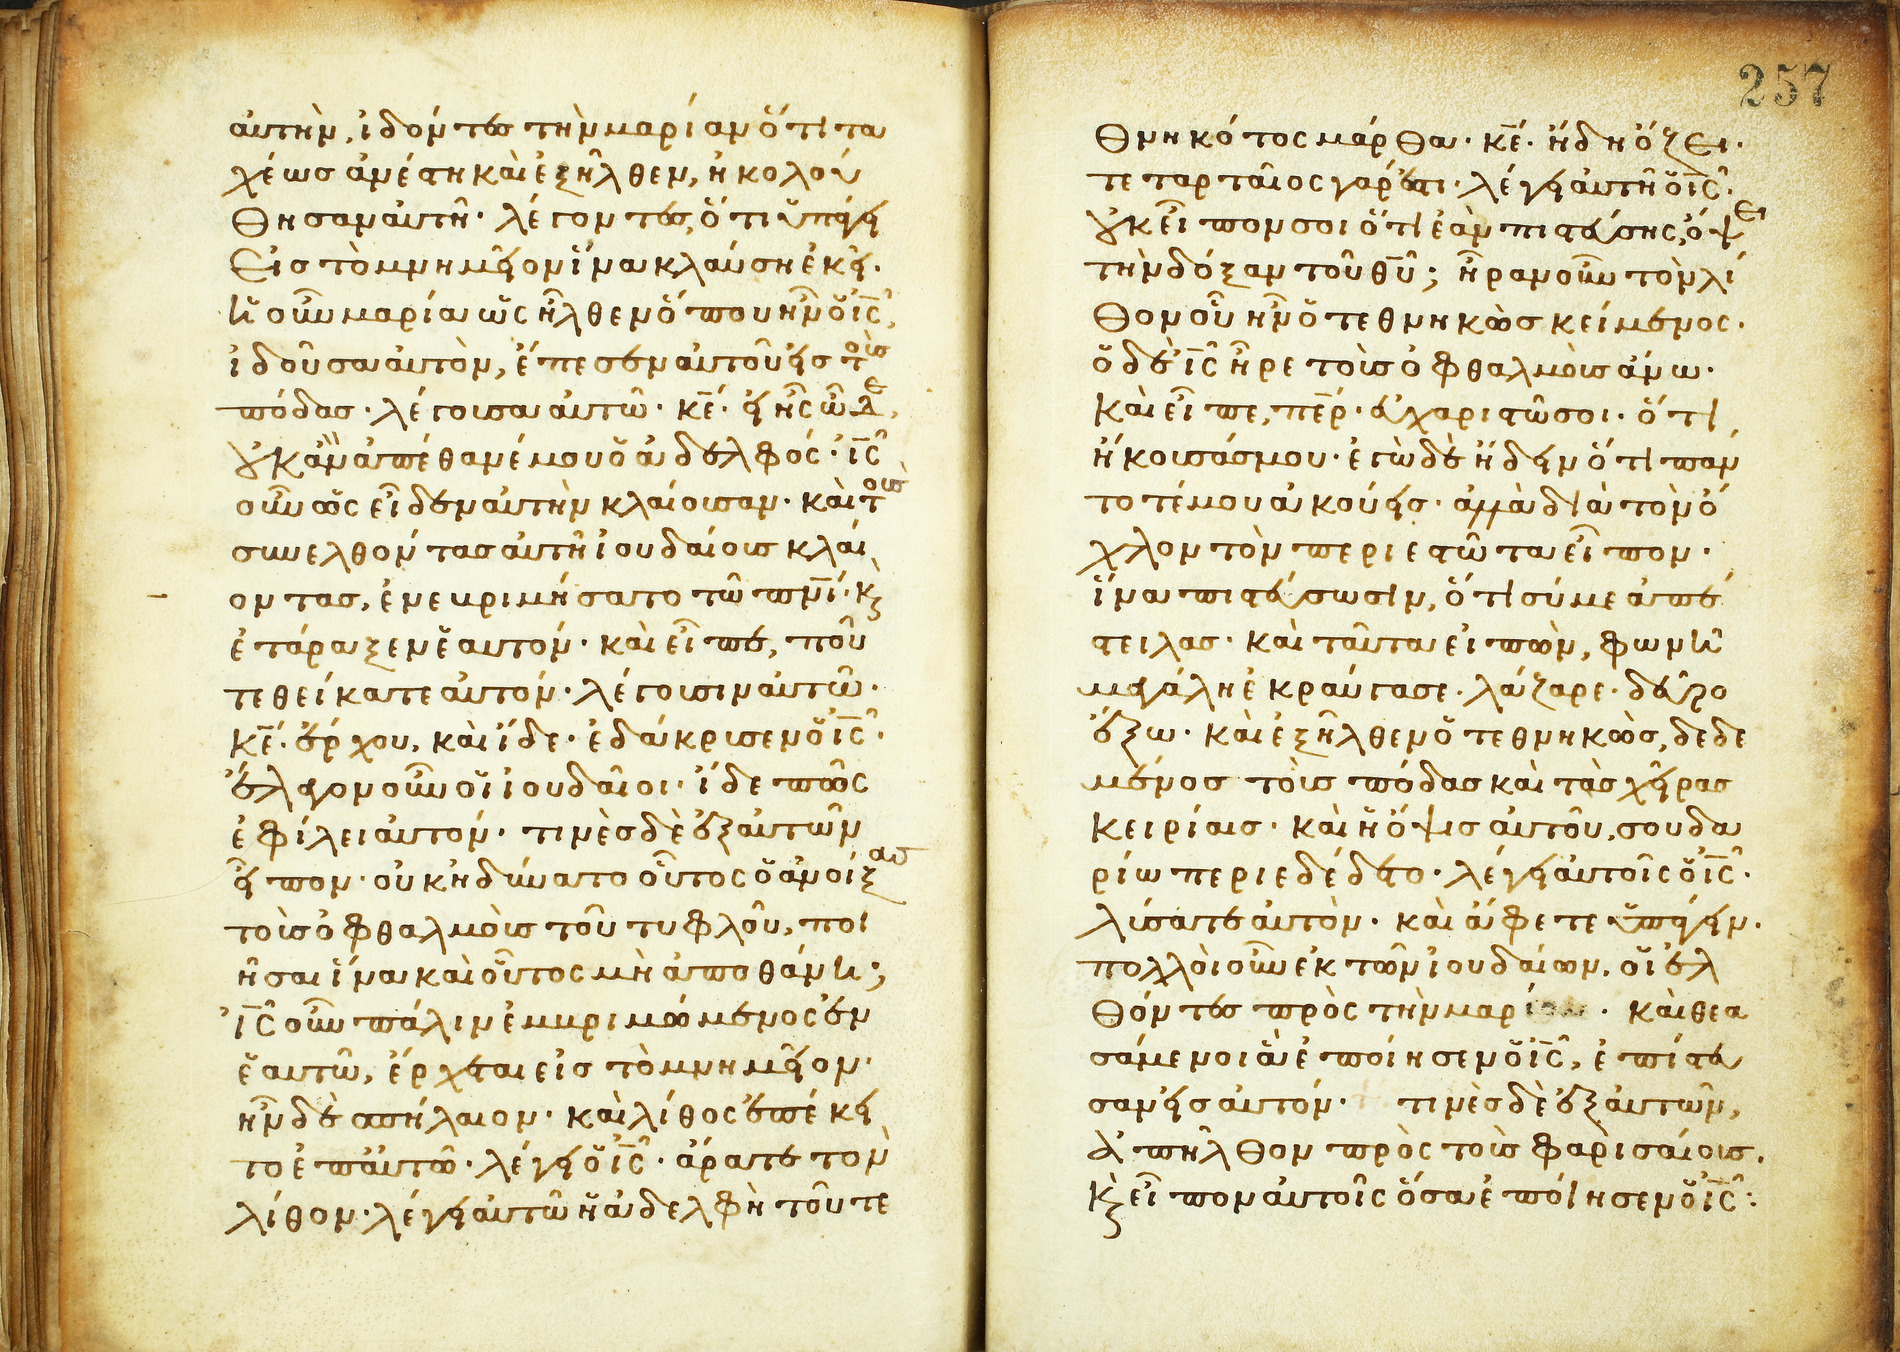 αὐτὴν, ἰδόντες τὴν μαρίαν ὅτι τα
χέως ἀνέστη καὶ ἐξῆλθεν, ἠκολού
θησαν αὐτῆ· λέγοντες, ὅτι ὑπάγει
εἰς τὸ μνημεῖον ἵνα κλαύση ἐκεῖ·
ἡ οὖν μαρία ὡς ἦλθεν ὅπου ἦν ὁ ις̅,
ἰδοῦσα αὐτὸν, ἔπεσεν αὐτοῦ εἰς τοὺς
πόδας· λέγουσα αὐτῶ· κε̅· εἰ ἦς ὧδε,
οὐκ ἂν ἀπέθανέ μου ὁ ἀδελφός· ις̅
οὖν ὡς εἶδεν αὐτὴν κλαίουσαν· καὶ τοὺς
συνελθόντας αὐτῆ ἰουδαίους κλαί
οντας, ἐνεβριμήσατο τῶ πνι̅· κ̀
ἐτάραξεν ἑαυτόν· καὶ εἶπε, ποῦ
τεθείκατε αὐτόν· λέγουσιν αὐτῶ·
κε̅· ἔρχου, καὶ ἴδε· ἐδάκρυσεν ὁ ις̅·
ἔλεγον οὖν οἱ ἰουδαῖοι· ἴδε πῶς
ἐφίλει αὐτόν· τινὲς δὲ ἐξ αὐτῶν
εἶπον· οὐκ ἠδύνατο οὗτος ὁ ἀνοίξας
τοὺς ὀφθαλμοὺς τοῦ τυφλοῦ, ποι
ῆσαι ἵνα καὶ οὗτος μὴ ἀποθάνη;
ις̅ οὖν πάλιν ἐμβριμώμενος ἐν
ἑαυτῶ, ἔρχεται εἰς τὸ μνημεῖον·
ἦν δὲ σπήλαιον· καὶ λίθος ἐπέκει
το ἐπ αὐτῶ· λέγει ὁ ις̅· ἄρατε τὸν
λίθον· λέγει αὐτῶ ἡ ἀδελφὴ τοῦ τε
257
θνηκότος μάρθα· κε̅· ἤδη ὄζει·
τεταρταῖος γάρ ἐστι· λέγει αὐτῆ ὁ ις̅·
οὐκ εἶπον σοι ὅτι ἐὰν πιστεύσης, ὄψει
τὴν δόξαν τοῦ θυ̅; ἦραν οὖν τὸν λί
θον οὗ ἦν ὁ τεθνηκὼς κείμενος·
ὁ δὲ ις̅ ἦρε τοὺς ὀφθαλμοὺς ἄνω·
καὶ εἶπε, περ̅· εὐχαριστῶ σοι· ὅτι
ἤκουσάς μου· ἐγὼ δὲ ἤδειν ὅτι πάν
τοτέ μου ἀκούεις· ἀλλὰ διὰ τὸν ὄ
χλον τὸν περιεστῶτα εἶπον·
ἵνα πιστεύσωσιν, ὅτι σύ με ἀπέ
στειλας· καὶ ταῦτα εἰπὼν, φωνῆ
μεγάλη ἐκραύγασε· λάζαρε· δεῦρο
ἔξω· καὶ ἐξῆλθεν ὁ τεθνηκὼς, δεδε
μένος τοὺς πόδας καὶ τὰς χεῖρας
κειρίαις· καὶ ἡ ὄψις αὐτοῦ, σουδα
ρίω περιεδέδετο· λέγει αὐτοῖς ὁ ις̅·
λύσατε αὐτὸν· καὶ ἄφετε ὑπάγειν·
πολλοὶ οὖν ἐκ τῶν ἰουδαίων, οἱ ἐλ
θόντες πρὸς τὴν μαρίαν· καὶ θεα
σάμενοι ἃ ἐποίησεν ὁ ις̅, ἐπίστευ
σαν εἰς αὐτόν· τινὲς δὲ ἐξ αὐτῶν,
ἀπῆλθον πρὸς τοὺς φαρισαίους,
κ̀ εἶπον αὐτοῖς ὅσα ἐποίησεν ὁ ις̅: